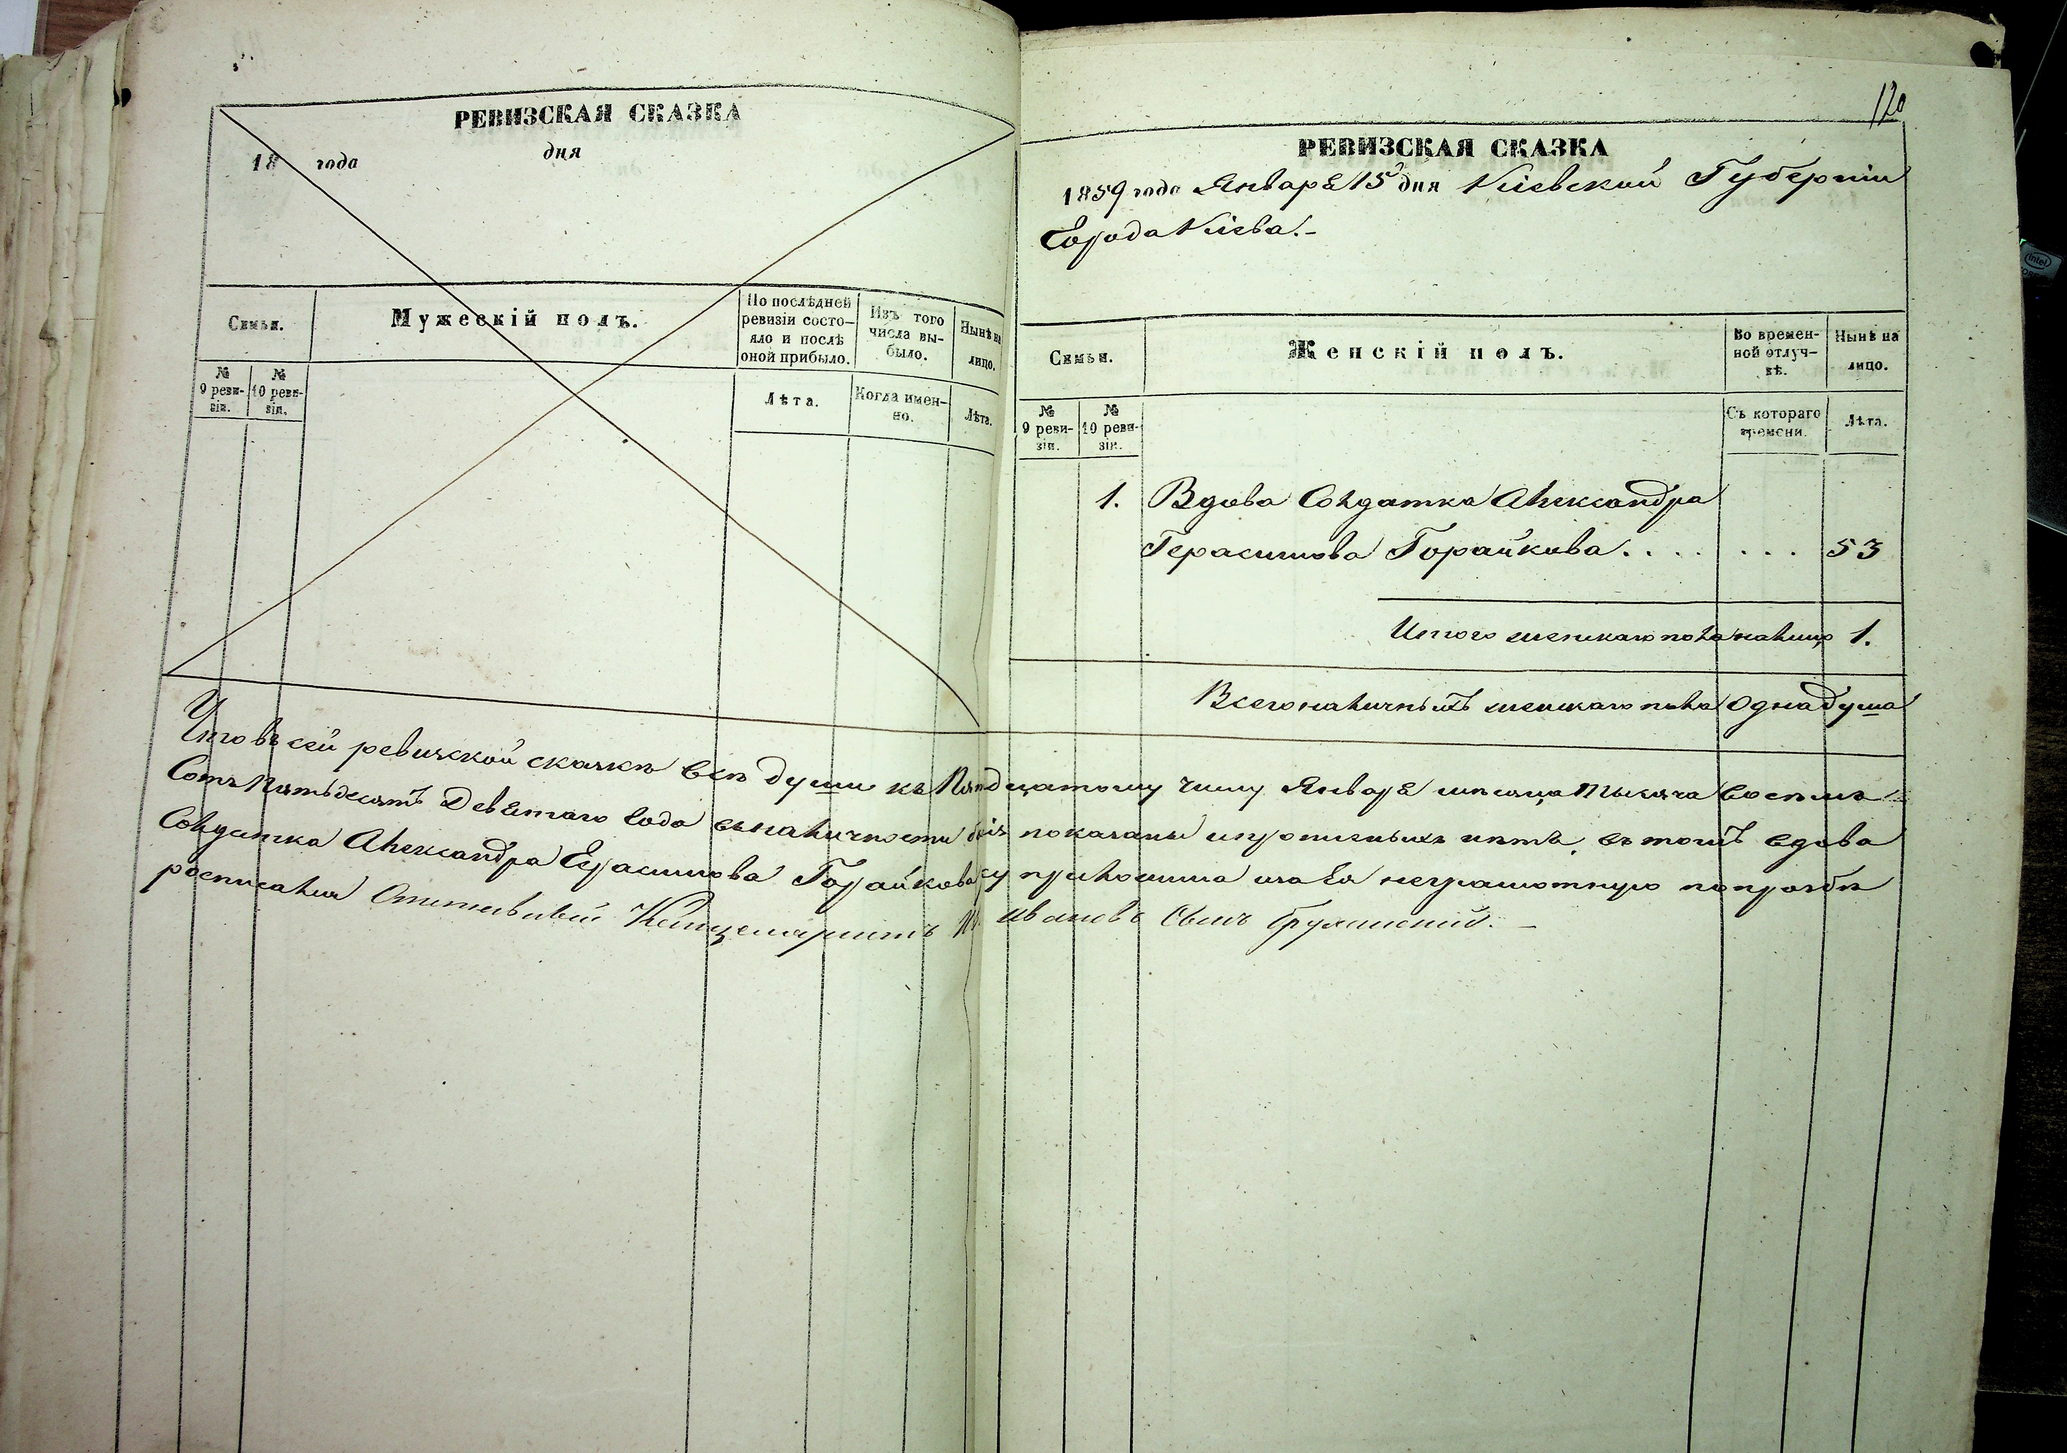 РЕВИЗСКАЯ СКАЗКА
18 года дня
Семьи.
Мужескій полъ.
По послѣдней ревизіи состо-
яло и послѣ оной прибыло.
Изъ того числа вы-
было.
Нынѣ на лицо.
№ 9 реви-
зіи.
№ 10 реви-
зіи.
Лѣта.
Когда имен-
но.
Лѣта.
120
РЕВИЗСКАЯ СКАЗКА
1859 года Января 15 дня Кіевской Губерніи
Города Кіева.-
Семьи.
Женскій полъ.
Во времен-
ной отлуч-
кѣ.
Нынѣ на лицо.
№ 9 реви-
зіи.
№ 10 реви-
зіи.
Съ котораго времени.
Лѣта.
1. Вдова Солдатка Александра
Герасимова Горайкова . . . . . . . 53
Итого женскаго пола налицо 1.
Всего наличныхъ женскаго пола одна душа
Что въ сей ревизской сказкѣ всѣ души къ Пятнадцатому числу Января мѣсяца тысяча восемь
Сотъ Пятьдесятъ Девятаго Года въ наличности показаны и прописныхъ нѣтъ, въ томъ вдова
Солдатка Александра Герасимова Горайкова руку приложила а за Ея неграмотную по прозбѣ
росписался Отставной Канцеляристъ Ивановъ Сынъ